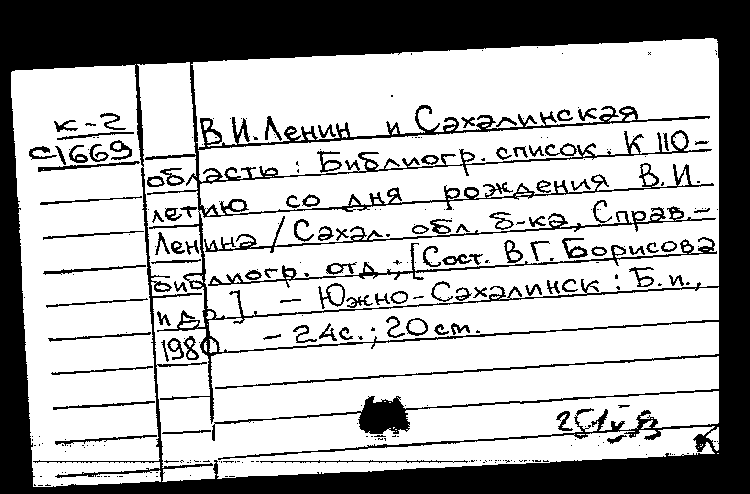 К-2
С-1669
В.И.Ленин и Сахалинская
область : Библиогр. список. К 110-
летию со дня рождения В.И.
Ленина / Сахал. обл. б-ка, Справ.-
библиогр. отд.; [Сост. В.Г. Борисова
и др.]. – Южно-Сахалинск : Б.и.,
1980. – 24с.; 20см.
К